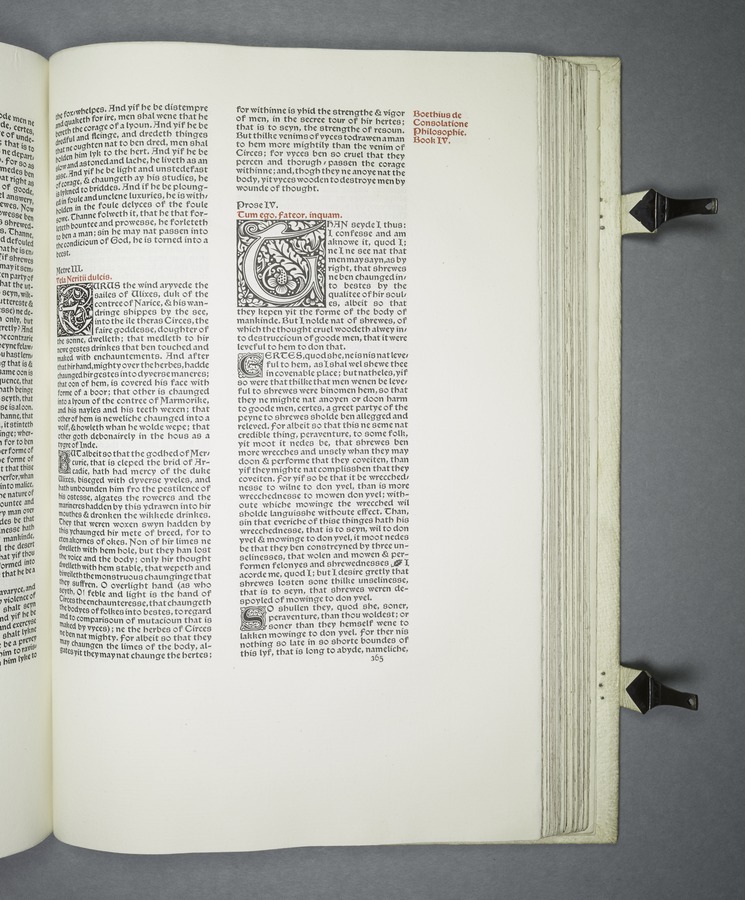 the fox/whelpes. And yif he be distempre
and quaketh for ire, men shal wene that he
bereth the corage of a lyoun. And yif he be
dredful and fleinge, and dredeth thinges
that ne oughten nat to ben dred, men shal
holden him lyk to the hert. And yif he be
slow and astoned and lache, he liveth as an
asse. And yif he be light and unstedefast
of corage, & chaungeth ay his studies, he
is lykned to briddes. And if he be ploung-
ed in foule and unclene luxuries, he is with/
holden in the foule delyces of the foule
sowe. Thanne folweth it, that he that for-
leteth bountee and prowesse, he forleteth
to ben a man; sin he may nat passen into
the condicioun of God, he is torned into a
beest.
Metre III.
Vela Neritii dulcis.
EURUS the wind aryvede the
sailes of Ulixes, duk of the
contree of Narice, & his wan-
dringe shippes by the see,
into the ile theras Circes, the
faire goddesse, doughter of
the sonne, dwelleth; that medleth to hir
newe gestes drinkes that ben touched and
maked with enchauntements. And after
that hir hand, mighty over the herbes, hadde
chaunged hir gestes into dyverse maneres;
that oon of hem, is covered his face with
forme of a boor; that other is chaunged
into a lyoun of the contree of Marmorike,
and his nayles and his teeth wexen; that
other of hem is neweliche chaunged into a
wolf, & howleth whan he wolde wepe; that
other goth debonairely in the hous as a
tygre of Inde.
BUT albeit so that the godhed of Mer/
curie, that is cleped the brid of Ar-
cadie, hath had mercy of the duke
Ulixes, biseged with dyverse yveles, and
hath unbounden him fro the pestilence of
his ostesse, algates the roweres and the
marineres hadden by this ydrawen into hir
mouthes & dronken the wikkede drinkes.
They that weren woxen swyn hadden by
this ychaunged hir mete of breed, for to
eten akornes of okes. Non of hir limes ne
dwelleth with hem hole, but they han lost
the voice and the body; only hir thought
dwelleth with hem stable, that wepeth and
biweileth the monstruous chaunginge that
they suffren. O overlight hand (as who
seyth, O! feble and light is the hand of
Circes the enchaunteresse, that chaungeth
the bodyes of folkes into bestes, to regard
and to comparisoun of mutacioun that is
maked by vyces); ne the herbes of Circes
ne ben nat mighty. For albeit so that they
may chaungen the limes of the body, al-
gates yit they may nat chaunge the hertes;
for withinne is yhid the strengthe & vigor
of men, in the secree tour of hir hertes;
that is to seyn, the strengthe of resoun.
But thilke venims of vyces todrawen a man
to hem more mightily than the venim of
Circes; for vyces ben so cruel that they
percen and thorugh/passen the corage
withinne; and, thogh they ne anoye nat the
body, yit vyces wooden to destroye men by
wounde of thought.
Boethius de
Consolatione
Philosophie.
Book IV.
Prose IV.
Tum ego, Fateor, inquam.
THAN seyde I thus:
I confesse and am
aknowe it, quod I;
ne I ne see nat that
men may sayn, as by
right, that shrewes
ne ben chaunged in/
to bestes by the
qualitee of hir soul/
es, albeit so that
they kepen yit the forme of the body of
mankinde. But I nolde nat of shrewes, of
which the thought cruel woodeth alwey in/
to destruccioun of goode men, that it were
leveful to hem to don that.
CERTES, quod she, ne is nis nat leve/
ful to hem, as I shal wel shewe thee
in covenable place; but natheles, yif
so were that thilke that men wenen be leve/
ful to shrewes were binomen hem, so that
they ne mighte nat anoyen or doon harm
to goode men, certes, a greet partye of the
peyne to shrewes sholde ben allegged and
releved. For albeit so that this ne seme nat
credible thing, peraventure, to some folk,
yit moot it nedes be, that shrewes ben
more wrecches and unsely whan they may
doon & performe that they coveiten, than
yif they mighte nat complisshen that they
coveiten. For yif so be that it be wrecched/
nesse to wilne to don yvel, than is more
wrecchednesse to mowen don yvel; with-
oute whiche mowinge the wrecched wil
sholde languisshe withoute effect. Than,
sin that everiche of thise thinges hath his
wrecchednesse, that is to seyn, wil to don
yvel & mowinge to don yvel, it moot nedes
be that they ben constreyned by three un-
selinesses, that wolen and mowen & per-
formen felonyes and shrewednesses I
acorde me, quod I; but I desire gretly that
shrewes losten sone thilke unselinesse,
that is to seyn, that shrewes weren de-
spoyled of mowinge to don yvel.
SO shullen they, quod she, soner,
peraventure, than thou woldest; or
soner than they hemself wene to
lakken mowinge to don yvel. For ther nis
nothing so late in so shorte boundes of
this lyf, that is long to abyde, nameliche,
165